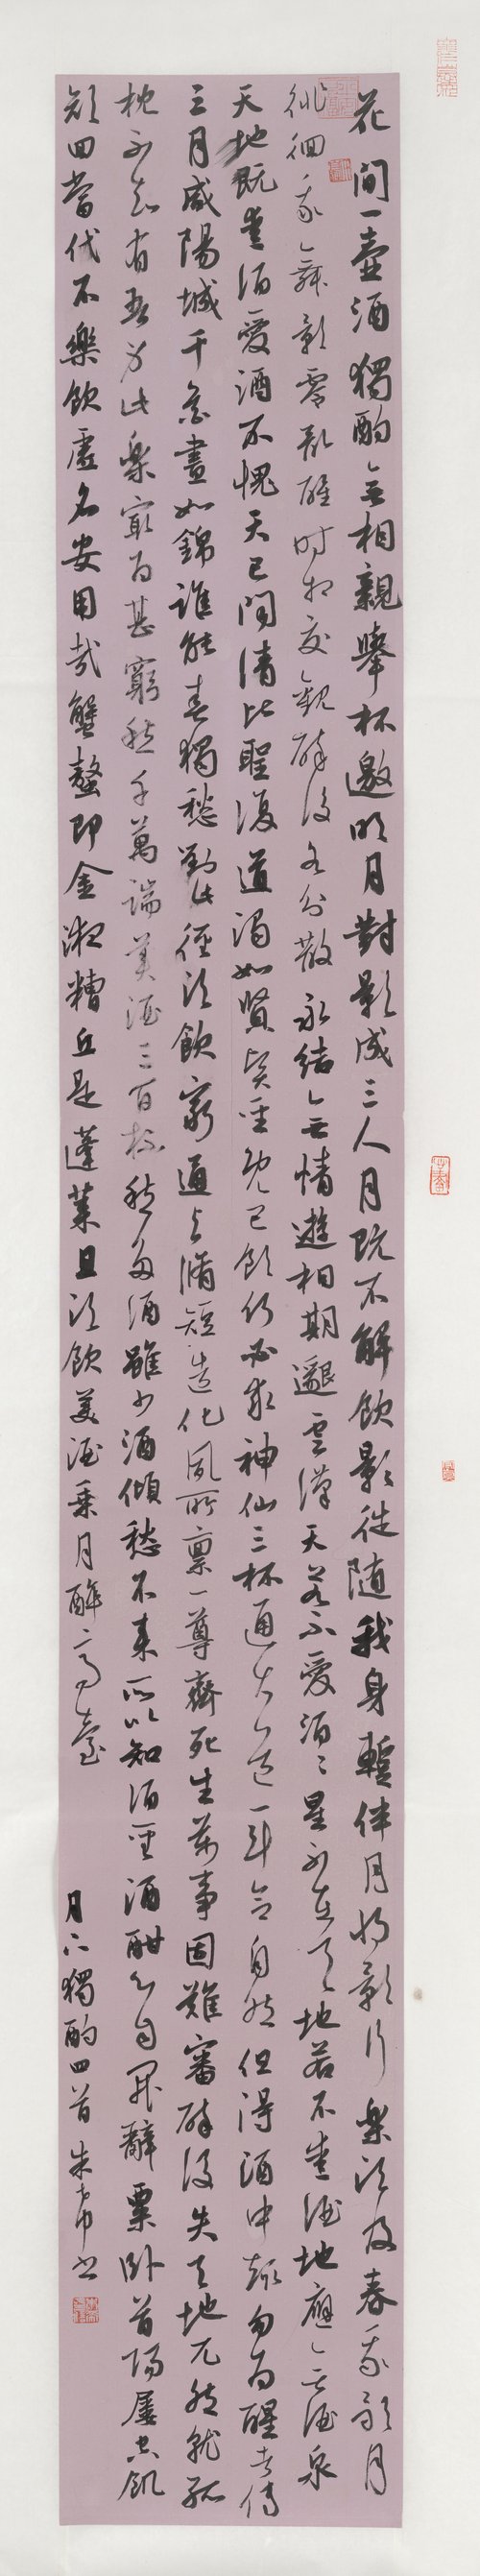 花間一壺酒獨酌無相親舉杯邀明月對影成三人月既不解飲影徒隨我身暫伴月將影行樂須及春我歌月
徘徊我舞影零亂醒時相交歡醉後各分散永結無情遊相期邈雲漢天若不愛酒〻星不在天地若不愛酒地應無酒泉
天地既愛酒愛酒不愧天已聞清比聖復道濁如賢賢聖既已飲何必求神仙三杯通大道一斗合自然但得酒中趣勿為醒者傳
三月咸陽城千花晝如錦誰能春獨愁對此徑須飲窮通與脩短造化夙所稟一尊齊死生萬事固難審醉後失天地兀然就孤
枕不知有吾身此樂最為甚窮愁千萬端美酒三百杯愁多酒雖少酒傾愁不來所以知酒聖酒酣心自開辭粟臥首陽屢空飢
顏回當代不樂飲虛名安用哉蟹螯即金液糟丘是蓬萊且須飲美酒乘月醉高臺
月下獨酌四首 朱書